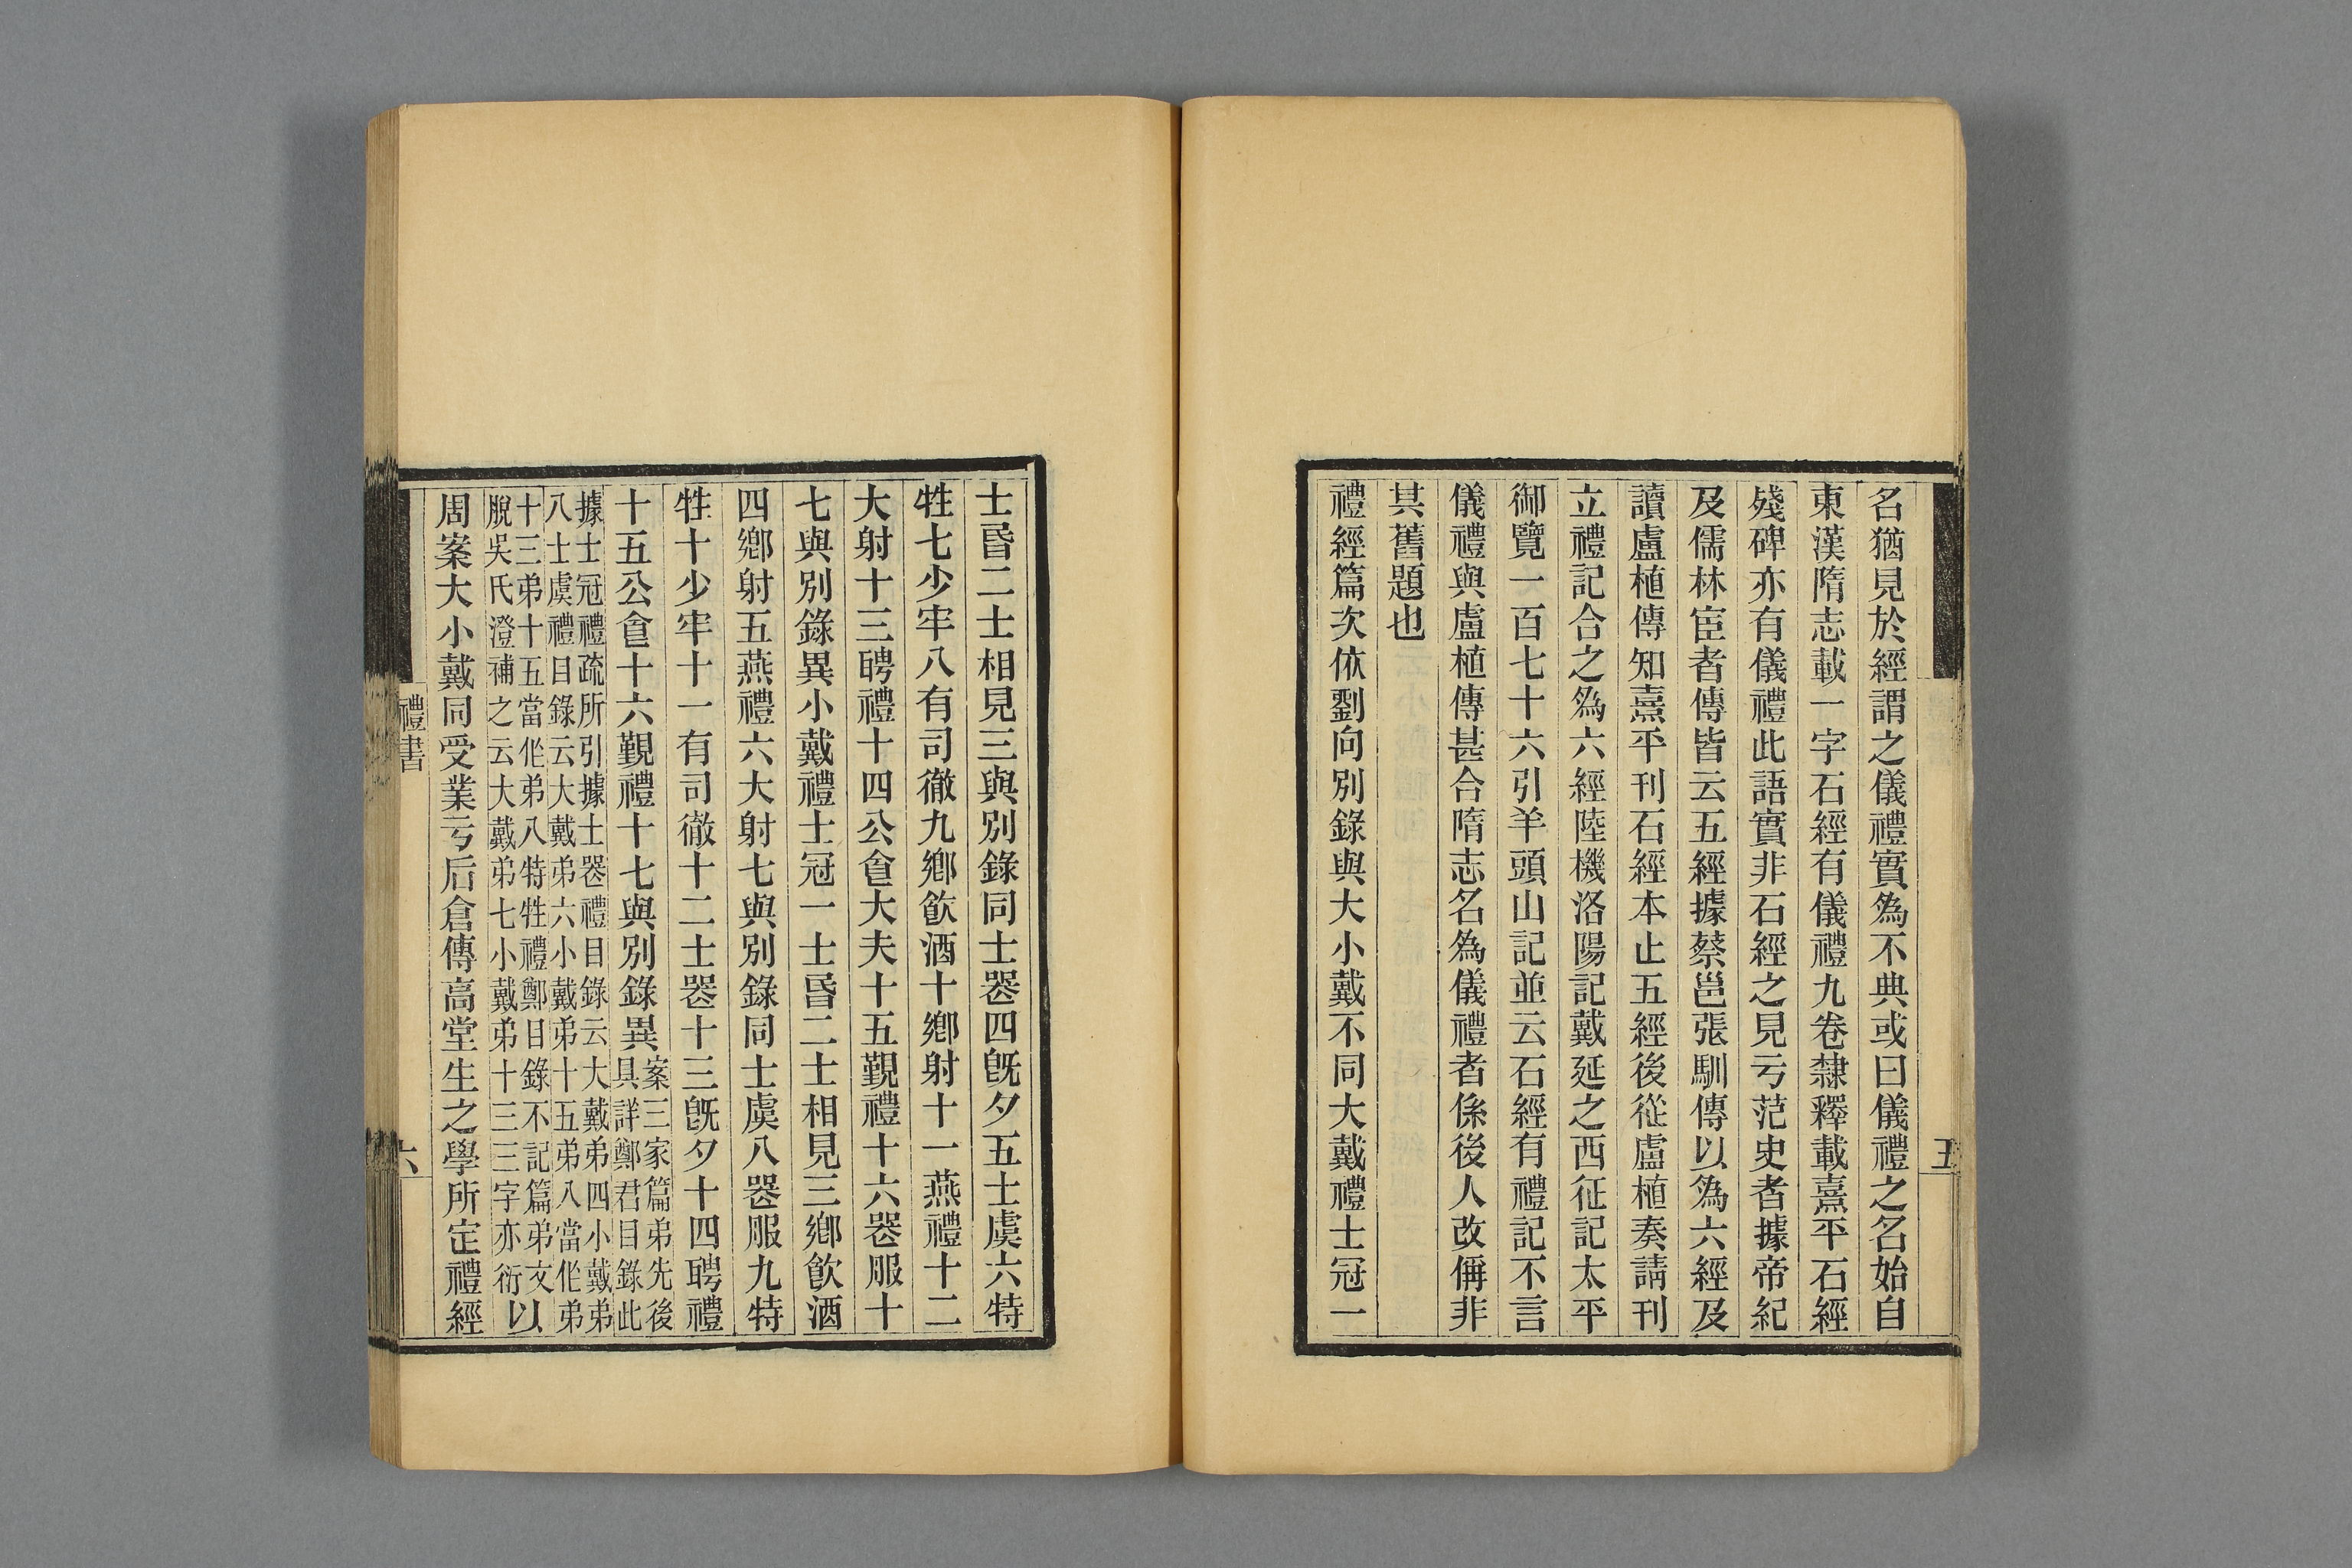 名猶見於經謂之儀禮實爲不典或曰儀禮之名始自
東漢隋志載一字石經有儀禮九卷隸釋載熹平石經
殘碑亦有儀禮此語實非石經之見亏范史者據帝紀
及儒林宦者傳皆云五經據蔡邕張馴傳以爲六經及
讀盧植傳知熹平刊石經本止五經後從盧植奏請刊
立禮記合之爲六經陸機洛陽記戴延之西征記太平
御覽一百七十六引羊頭山記並云石經有禮記不言
儀禮與盧植傳甚合隋志名爲儀禮者係後人改偁非
其舊題也
禮經篇次依劉向別錄與大小戴不同大戴禮士冠一
五
士昏二士相見三與別錄同士喪四旣夕五士虞六特
牲七少牢八有司徹九鄉飮酒十鄉射十一燕禮十二
大射十三聘禮十四公食大夫十五覲禮十六喪服十
七與別錄異小戴禮士冠一士昏二士相見三鄉飮酒
四鄉射五燕禮六大射七與別錄同士虞八喪服九特
牲十少牢十一有司徹十二士喪十三旣夕十四聘禮
十五公食十六覲禮十七與別錄異案三家篇弟先後
具詳鄭君目錄此
據士冠禮疏所引據士喪禮目錄云大戴弟四小戴弟
八士虞禮目錄云大戴弟六小戴弟十五弟八當作弟
十三弟十五當作弟八特牲禮鄭目錄不記篇弟文以
脫吳氏澄補之云大戴弟七小戴弟十三三字亦衍
周案大小戴同受業亏后倉傳高堂生之學所定禮經
禮書
六